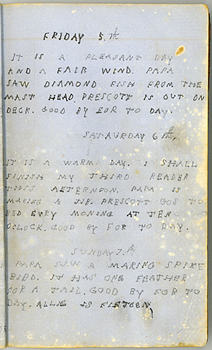 FRIDAY 5th
IT IS A PLEASANT DAY
AND A FAIR WIND. PAPA
SAW DIAMOND FISH FROM THE
MAST HEAD. PRESCOTT IS OUT ON
DECK. GOOD BY FOR TO DAY.
SATAURDAY 6th
IT IS A WARM DAY. I SHALL
FINISH MY THIRD READER
THIS AFTERNOON. PAPA IS
MAKING A JIB. PRESCOTT GOS TO
BED EVERY MONING AT TEN
OCLOCK. GOOD BY FOR TO DAY.
SUNDAY 7th
PAPA SAW A MARING SPIKE
BIRD. IT HAS ONE FEATHER
FOR A TAIL. GOOD BY FOR TO
DAY. ALLIE IS FIFTEEN